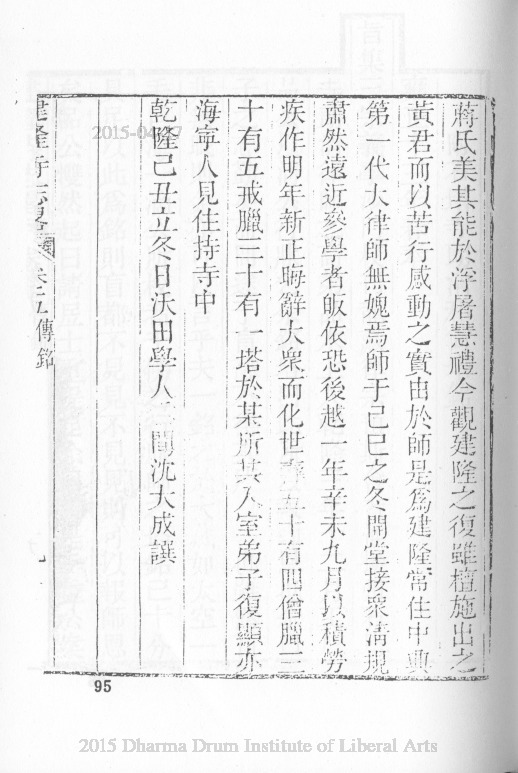 蔣氏美其能於浮屠慧禮今觀建隆之復雖檀施出之
黃君而以苦行感動之實由於師是爲建隆常住中興
第一代大律師無媿焉師于己巳之冬開堂接衆淸規
肅然遠近參學者皈依恐後越一年辛未九月以積勞
疾作明年新正晦辭大衆而化世壽五十有四僧臘三
十有五戒臘三十有一塔於某所其入室弟子復顯亦
海寧人見住持寺中
乾隆己丑立冬日沃田學人 閒沈大成譔
建隆寺志畧 卷之五傳銘
九
95
2015-04-17
2015 Dharma Drum Institute of Liberal Arts